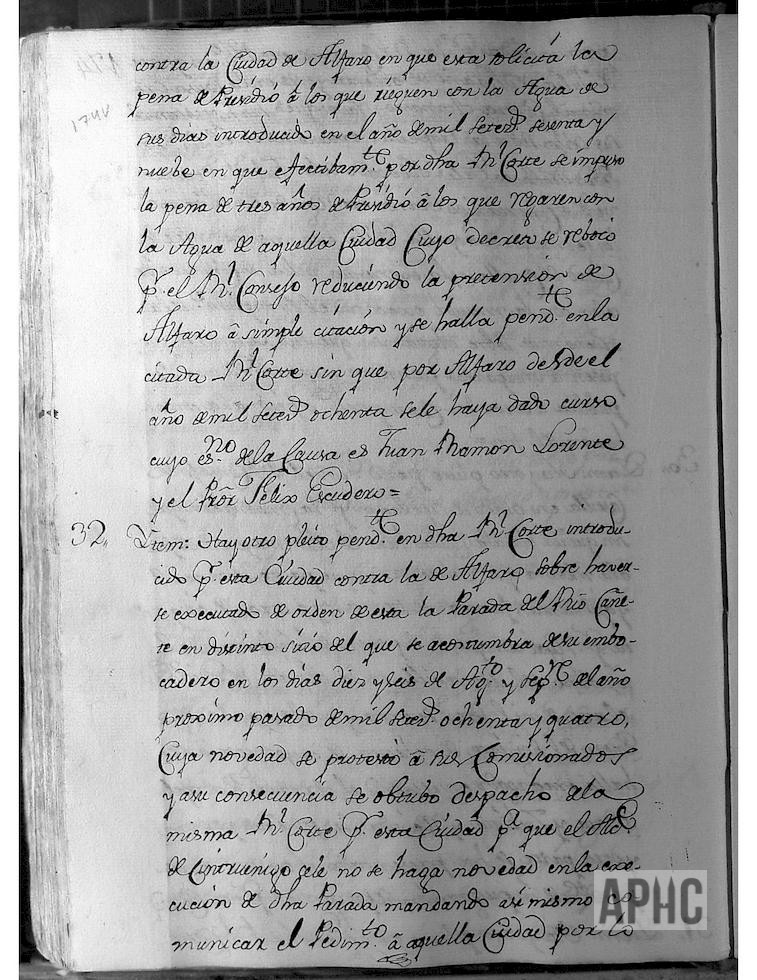 174v
contra la Ciudad de Alfaro en que esta solicitá la
pena de Presidió á los que rieguen con la Agua de
sus dias introducido en el año de mil Seteꝫ. sesenta y
nuebe en que efectibamte. por dha Rl. Corte se impuso
la pena de tres años de Presidió á los que regaren con
la Agua de aquella Ciudad Cuyo decreto se reboco
pr. el Rl. Consejo reduciendo la pretension de
Alfaro á simple citación y se halla pendte. en la
citada Rl. Corte sin que por Alfaro desde el
año de mil Seteꝫ. ochenta se le haya dado curso
cuyo esno. de la Causa es Juan Ramon Lorente
y el Pror Felix Escudero=
32. Ytem: Hay otro pleito pendte. en dha Rl. Corte introdu-
cido pr. esta Ciudad contra la de Alfaro sobre haver-
se executado de orden de esta la Parada del Rio Cañe-
te en distinto sitio del que se acostumbra de su embo-
cadero en los dias diez y seis de Agto. y Sepre. del año
proximo pasado de mil Seteꝫ. ochenta y quatro,
Cuya novedad se protestó á sus Comisionados
y a su consecuencia se obtubo despacho de la
misma Rl. Corte pr. esta Ciudad pa. que el Alce
de Cintruenigo cele no se haga novedad en la exe-
cución de dha Parada mandando asi mismo co-
municar el Pedimto. á aquella Ciudad por lo
APHC